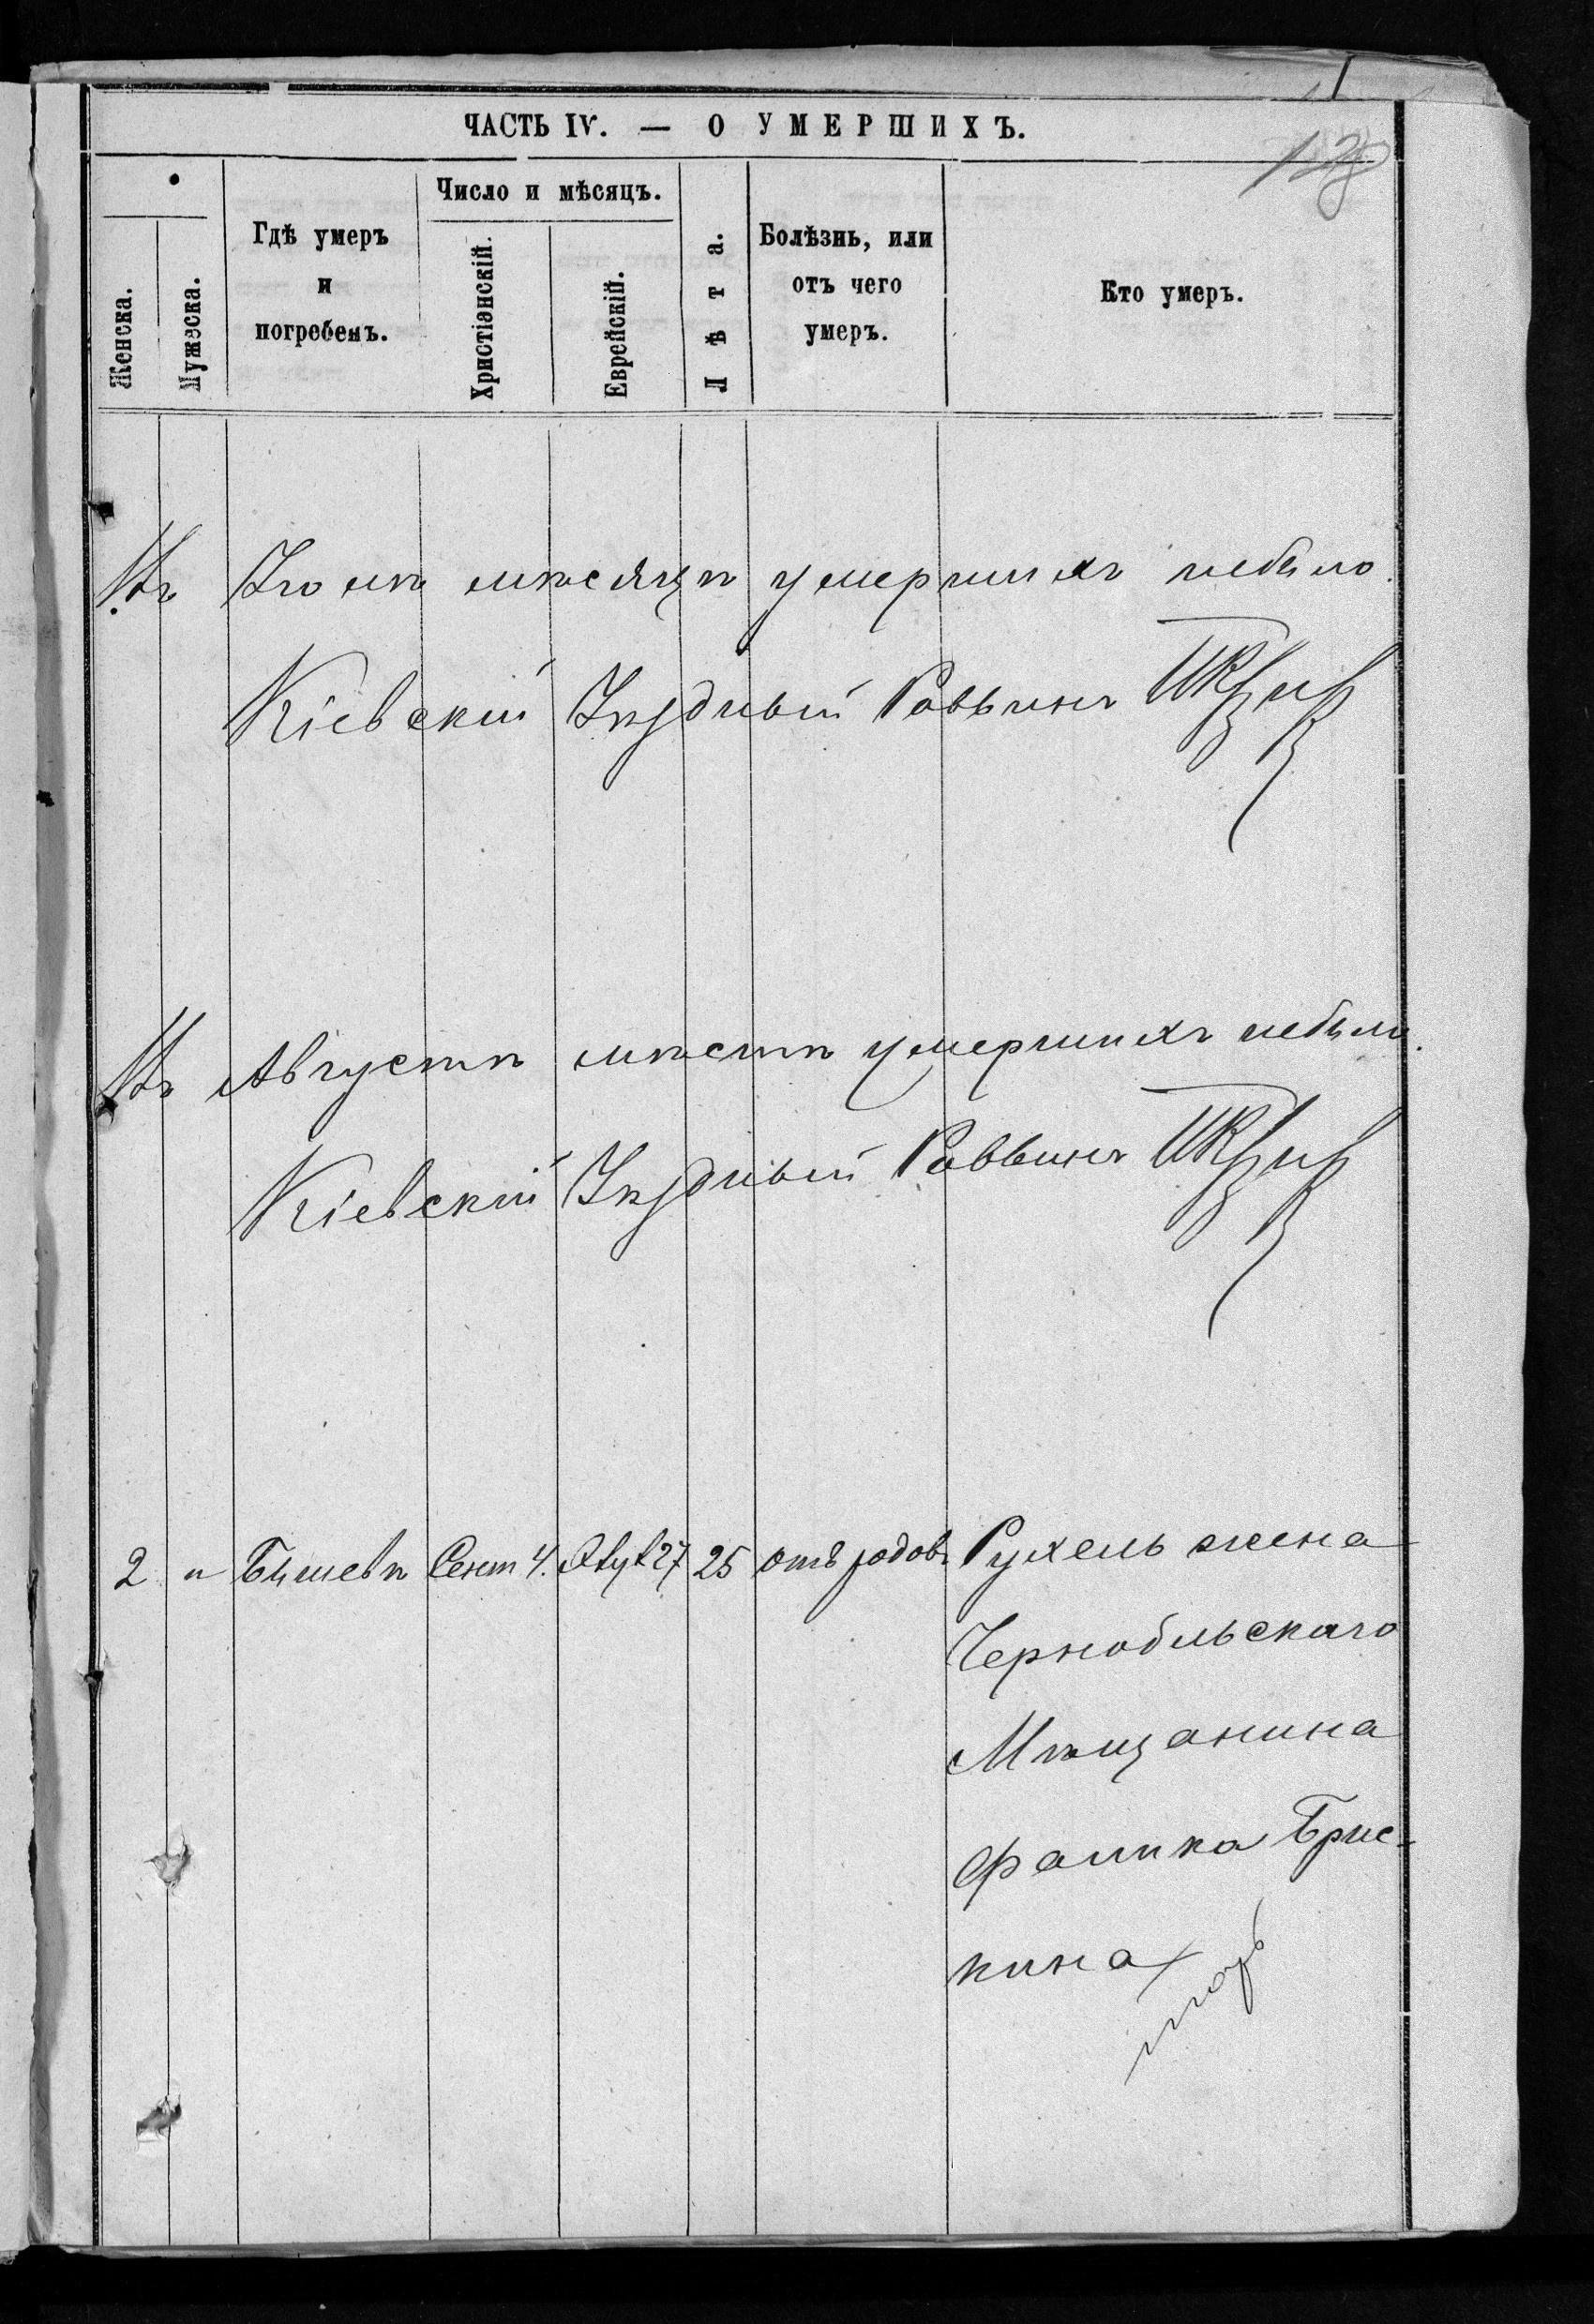 ЧАСТЬ IV. — О УМЕРШИХЪ.
Женска.
Мужеска.
Гдѣ умеръ
и
погребенъ.
Число и мѣсяцъ.
Христіанскій.
Еврейскій.
Лѣта.
Болѣзнь, или
отъ чего
умеръ.
Кто умеръ.
Въ Іюлѣ мѣсяцѣ умершихъ небыло.
Кіевскій Уѣздный Раввинъ
Въ Августѣ умершихъ небыло.
Кіевскій Уѣздный Раввинъ
2 " Бышевѣ Сент 4. 27 25 отъ родовъ Рухель жена
Чернобыльскаго
Мѣщанина
Фалика Брис-
кина